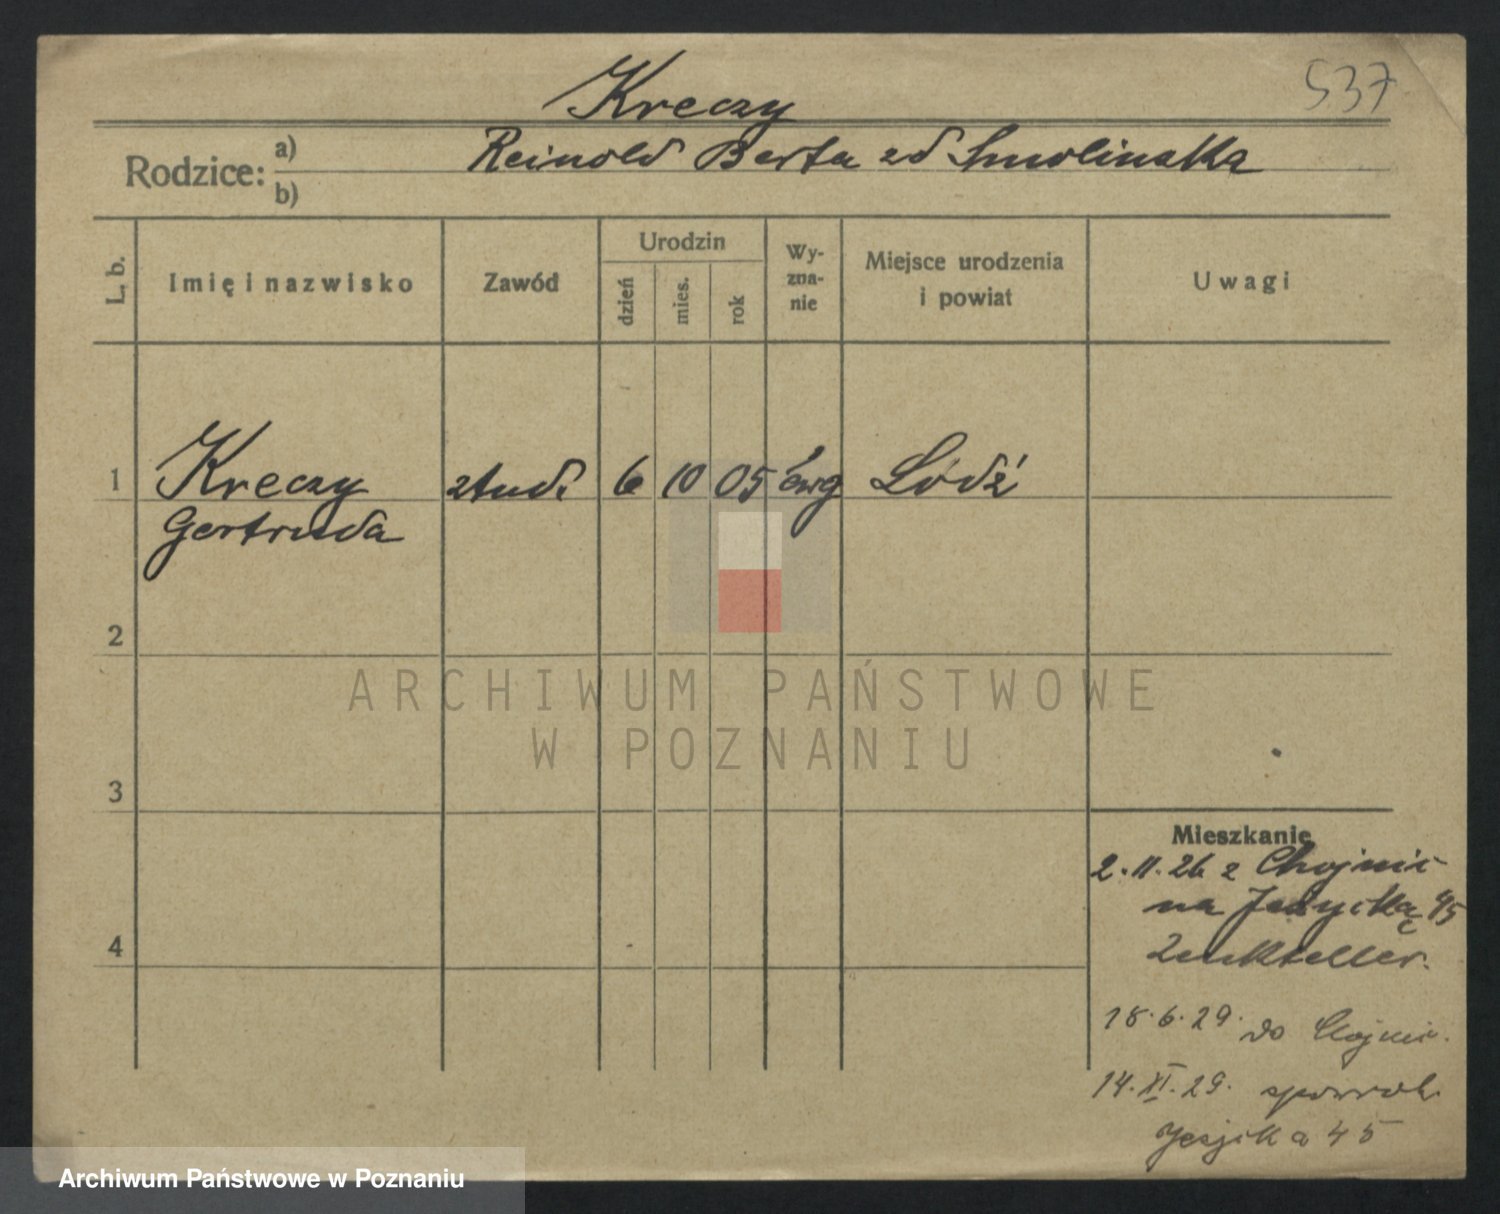 537
Kreczy
Rodzice: a) b)
Reinold Berta zd Smolinska
L. b.
Imię i nazwisko
Zawód
Urodzin
dzień
mies.
rok
Wy-
zna-
nie
Miejsce urodzenia
i powiat
Uwagi
1
Kreczy
Gertruda
stud.
6
10
05
ewg
Łódź
2
3
4
Mieszkanie
2.11.26 z Chojnic
na Jeżycką 45
18.6.29. do Chojnic.
14.XI.29.
45
ARCHIWUM PAŃSTWOWE
W POZNANIU
Archiwum Państwowe w Poznaniu